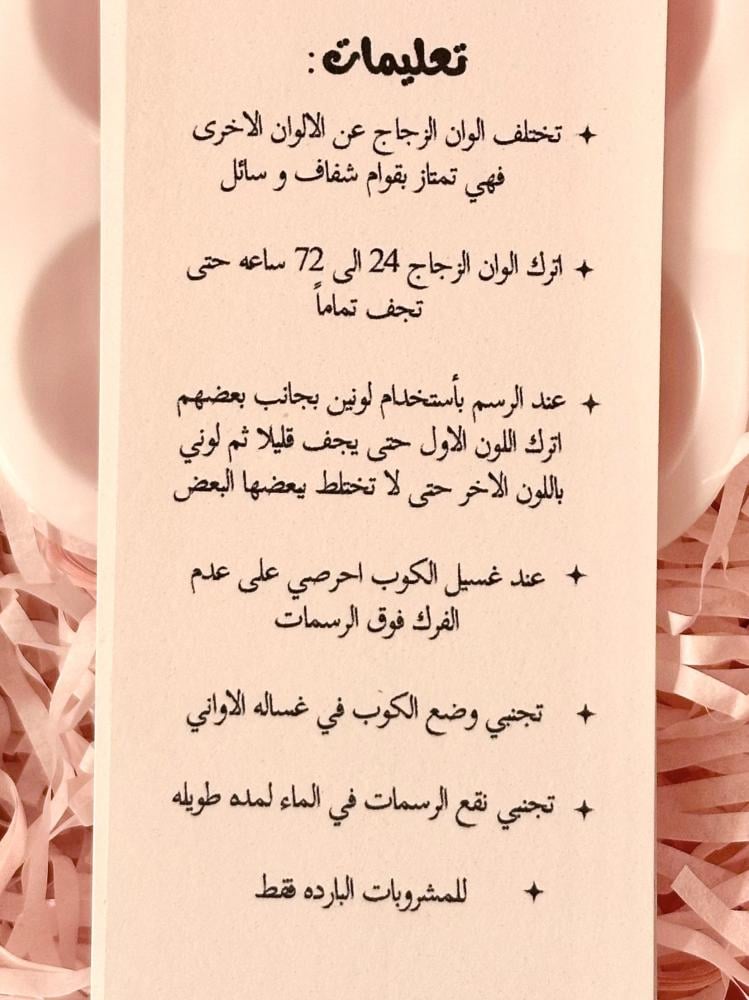 تعليمات:
✦ تختلف الوان الزجاج عن الالوان الاخرى
فهي تمتاز بقوام شفاف و سائل
✦ اترك الوان الزجاج 24 الى 72 ساعه حتى
تجف تماماً
✦ عند الرسم بأستخدام لونين بجانب بعضهم
اترك اللون الاول حتى يجف قليلا ثم لوني
باللون الاخر حتى لا تختلط ببعضها البعض
✦ عند غسيل الكوب احرصي على عدم
الفرك فوق الرسمات
✦ تجنبي وضع الكوب في غساله الاواني
✦ تجنبي نقع الرسمات في الماء لمده طويله
✦ للمشروبات البارده فقط